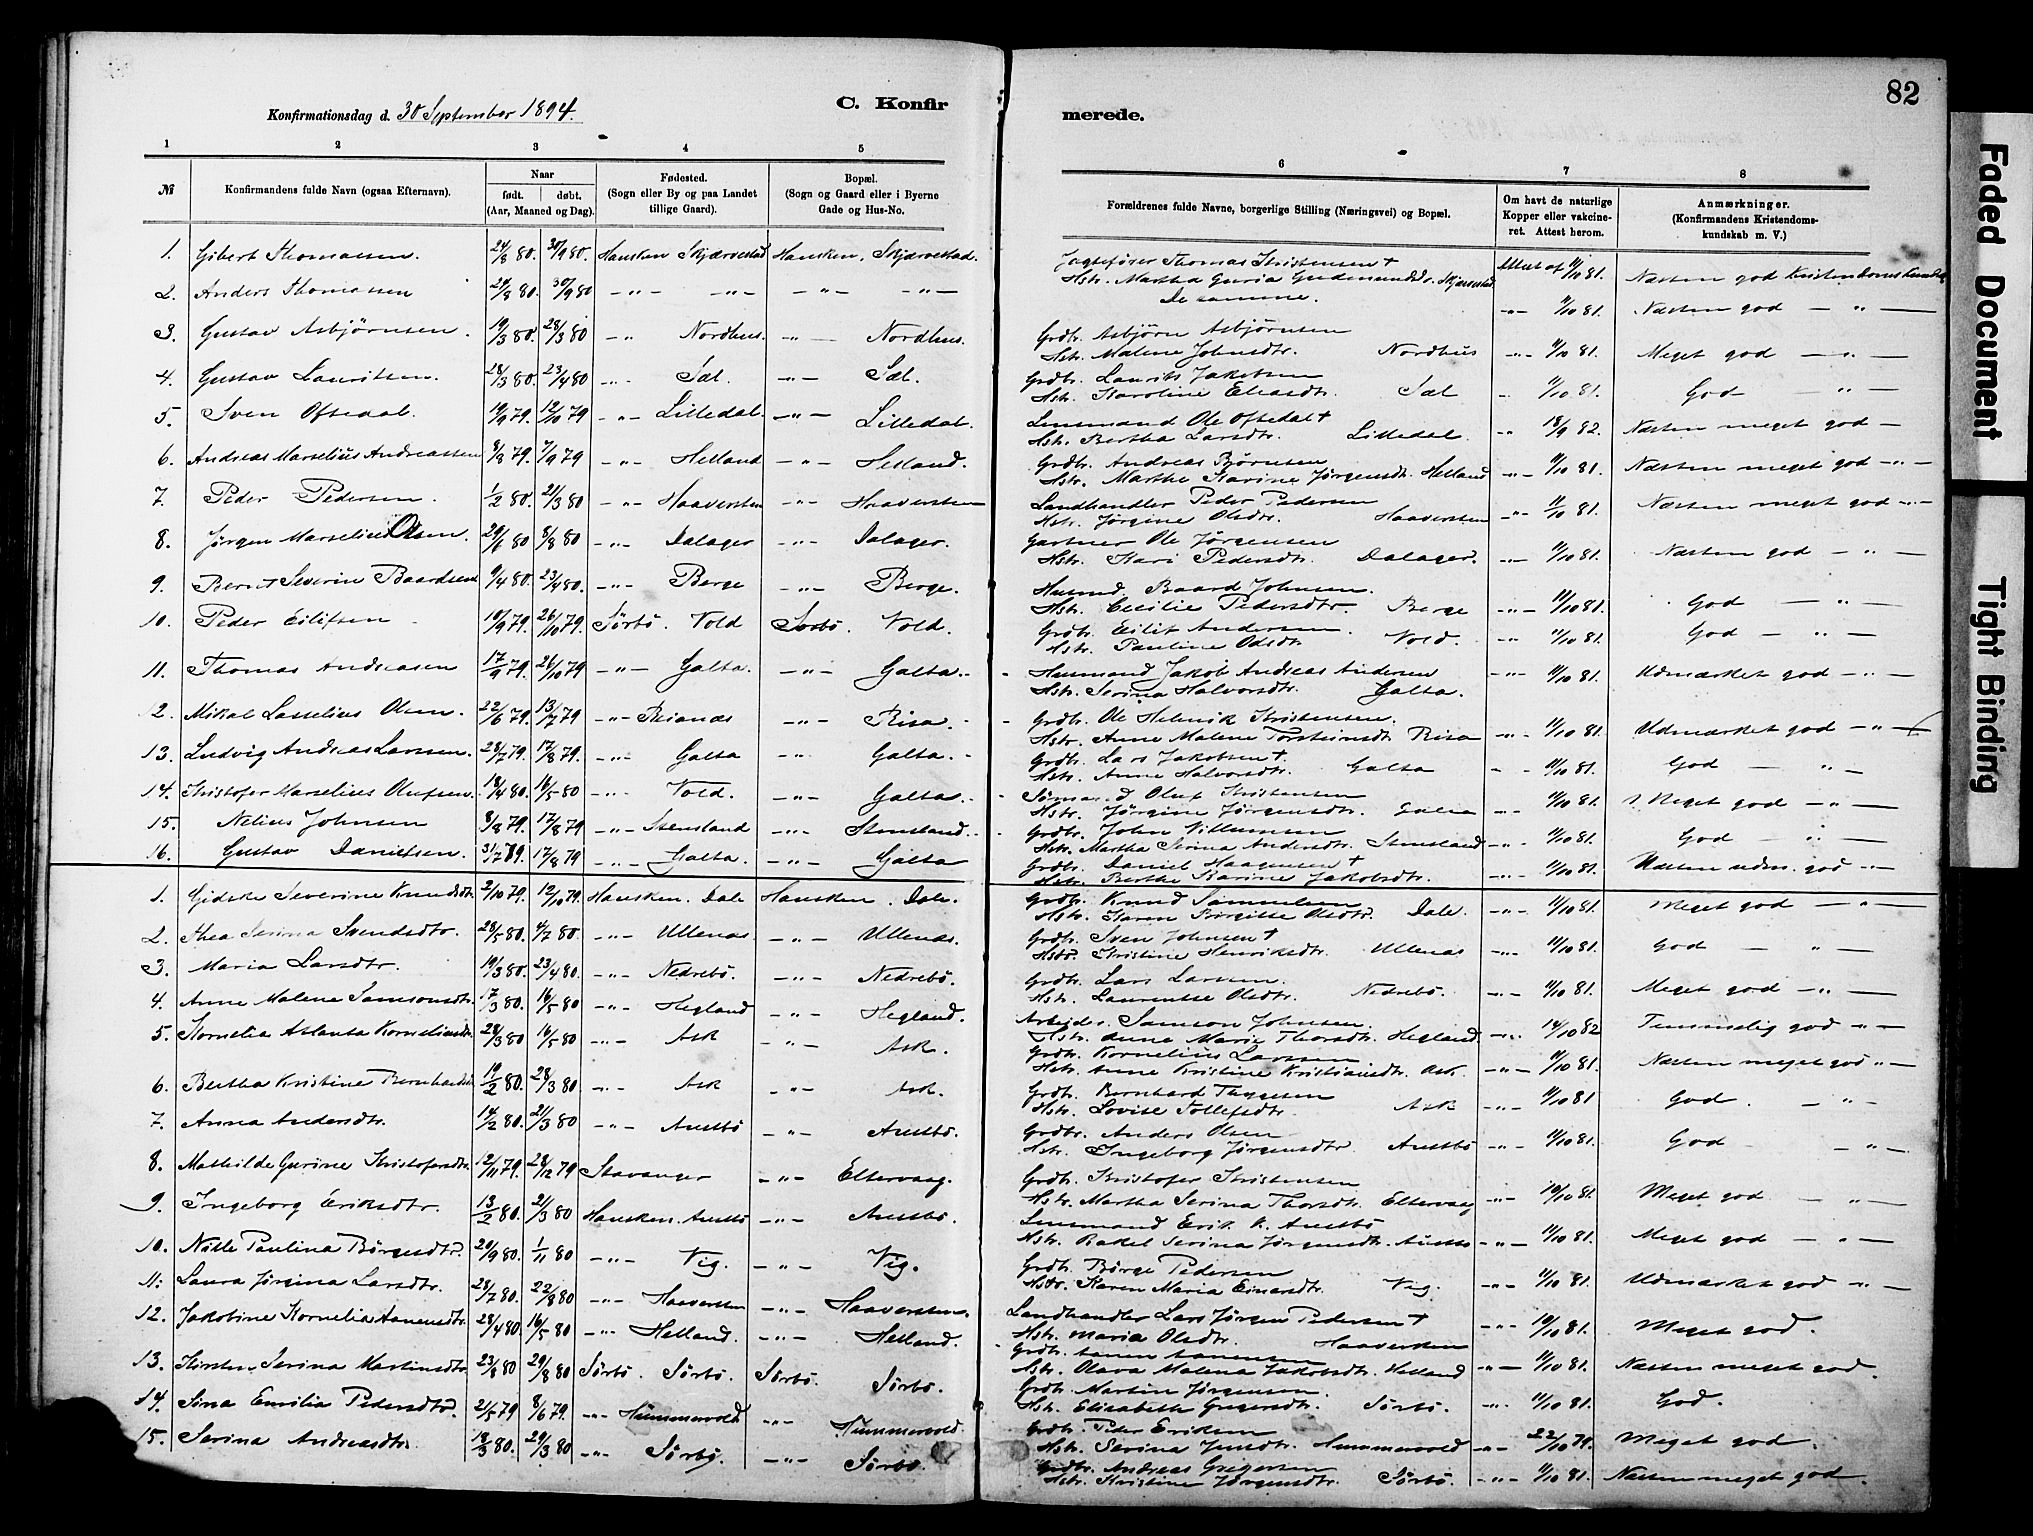 82
C. Konfir
merede.
Konfirmationsdag d. 30 September 1894.
1 2 3 4 5 6 7 8
№ Konfirmandens fulde Navn (ogsaa Efternavn). Naar født. døbt. (Aar, Maaned og Dag). Fødested. (Sogn eller By og paa Landet tillige Gaard). Bopæl. (Sogn og Gaard eller i Byerne Gade og Hus-No. Forældrenes fulde Navne, borgerlige Stilling (Næringsvei) og Bopæl. Om havt de naturlige Kopper eller vakcineret. Attest herom. Anmærkninger. (Konfirmandens Kristendomskundskab m. V.)
1. Gibert Thomassen. 24/8 80. 30/9 80. Hausken Skjærvestad Hausken, Skjærvestad. Jagtefører Thomas Kristensen † Hstr. Martha Guria Gudmundsdtr. Skjærvestad Attest af 11/10 81. Næsten god Kristendomskundsk
2. Anders Thomassen 24/8 80. 30/9 80 -"- -"- -"- -"- De samme. -"- 11/10 81. Næsten god — " —
3. Gustav Asbjørnsen. 19/3 80. 28/3 80 -"- Nordhus. -"- Nordhus. Grdbr. Asbjørn Asbjørnsen Hstr. Malene Johnsdtr. Nordhus -"- 11/10 81. Meget god — " —
4. Gustav Lauritsen. 28/3 80. 23/4 80 -"- Sæl. -"- Sæl. Grdbr. Laurits Jakobsen Hstr. Karoline Eliasdtr. Sæl -"- 11/10 81. God — " —
5. Sven Oftedal. 19/9 79. 12/10 79 -"- Lilledal. -"- Lilledal. Lensmand Ole Oftedal † Hstr. Bertha Larsdtr. Lilledal. -"- 18/9 82. Næsten meget god —
6. Andreas Marselius Andreassen 8/8 79. 7/9 79 -"- Helland -"- Helland. Grdbr. Andreas Bjørnsen Hstr. Marthe Karine Jørgensdtr. Helland -"- 11/10 81. Næsten meget god -"-
7. Peder Pedersen. 1/2 80. 21/3 80 -"- Haaversten -"- Haaversten Landhandler Peder Pedersen Hstr. Jørgine Olsdtr. Haaversten -"- 11/10 81. Næsten meget god -"-
8. Jørgen Marselius Olsen. 29/6 80 8/8 80 -"- Dalager -"- Dalager. Gartner Ole Jørgensen Hstr. Kari Pedersdtr. Dalager. -"- 11/10 81. Næsten god — " —
9. Bernt Severin Baardsen 9/4 80. 23/4 80. -"- Berge -"- Berge. Husmd. Baard Johnsen. Hstr. Cecilie Pedersdtr Berge -"- 11/10 81. God — " —
10. Peder Eilifsen 10/9 79. 26/10 79. Sørbø. Vold Sørbø. Vold. Grdbr. Eilif Andersen. Hstr. Pauline Olsdtr Vold. -"- 11/10 81. God — " —
11. Thomas Andreasen 17/9 79. 26/10 79. -"- Galta. -"- Galta. Husmand Jakob Andreas Andersen Hstr. Serina Halvorsdtr. Galta. -"- 11/10 81. Udmærket god -"-
12. Mikal Lasselius Olsen. 22/6 79. 13/7 79 -"- -"- Risa. Grdbr. Ole Helmik Kristensen. Hstr. Anne Malene Torsteinsdtr Risa -"- 11/10 81. Udmærket god -"-
13. Ludvig Andreas Larsen. 28/7 79. 17/8 79. -"- Galta -"- Galta. Grdbr. Lars Jakobsen †. Hstr. Anne Halvorsdtr. Galta -"- 11/10 81. God — " —
14. Kristofer Marselius Olufsen. 18/4 80. 16/5 80 -"- Vold. -"- Galta. Sømand Oluf Kristensen Hstr. Jørgine Jørgensdtr. Galta -"- 11/10 81. Meget god — " —
15. Nelius Johnsen 8/8 79. 17/8 79 -"- Stensland -"- Stensland. Grdbr. John Villumsen Hstr. Martha Serina Andersdtr. Stensland -"- 11/10 81. God " —
16. Gustav Danielsen. 31/7 79. 17/8 79 -"- Galta. -"- Galta Grdbr. Daniel Haagensen † Hstr. Berthe Karine Jakobsdtr. -"- 11/10 81. Næsten udm. god -"-
1. Gidske Severine Knudsdtr. 2/10 79. 12/10 79. Hausken. Dale Hausken. Dale. Grdbr. Knud Samuelsen Hstr. Karen Birgitte Olsdtr. Dale. -"- 11/10 81. Meget god — " —
2. Thea Serina Svendsdtr. 28/5 80. 4/7 80. -"- Ullenæs. -"- Ullenæs. Grdbr. Sven Johnsen † Hstr. Kristine Henriksdtr. Ullenæs -"- 11/10 81. God — " —
3. Maria Larsdtr. 19/3 80. 23/4 80. -"- Nedrebø. -"- Nedrebø. Grdbr. Lars Larsen. Hstr. Laurentse Olsdtr. Nedrebø. -"- 11/10 81. Meget god — " —
4. Anne Malene Samsonsdtr. 17/3 80. 16/5 80 -"- Hegland -"- Hegland. Arbeider Samson Johnsen. Hstr. Anne Marie Thorsdtr. Hegland -"- 14/10 82 Temmelig god -"-
5. Kornelia Atlanta Korneliusdtr. 28/3 80 16/5 80 -"- Ask -"- Ask. Grdbr. Kornelius Larsen Hstr. Anne Kristine Kristiansdtr. Ask. -"- 11/10 81. Næsten meget god -"-
6. Bertha Kristine Bernhardsdtr 19/2 80. 28/3 80 -"- Ask -"- Ask. Grdbr. Bernhard Thygesen Hstr. Lovise Tollefsdtr. Ask -"- 11/10 81 God. — " —
7. Anna Andersdtr. 14/2 80. 21/3 80 -"- Austbø -"- Austbø. Grdbr. Anders Olsen Hstr. Ingeborg Jørgensdtr. Austbø -"- 11/10 81. God — " —
8. Mathilde Gurine Kristofersdtr. 12/11 79. 28/12 79 Stavanger -"- Eltervaag. Grdbr. Kristofer Kristensen Hstr. Martha Serina Thorsdtr. Eltervaag -"- 10/10 81. Meget god — " —
9. Ingeborg Eriksdtr. 13/2 80. 21/3 80 Hausken. Austbø -"- Austbø. Lensmand Erik K. Austbø Hstr. Rakel Serina Jørgensdtr. Austbø -"- 11/10 81. Meget god — " —
10. Nille Paulina Børgesdtr. 20/9 80. 1/11 80 -"- Vig. -"- Vig. Grdbr. Børge Pedersen Hstr. Karen Maria Einarsdtr. Vig. -"- 11/10 81. Udmærket god -"-
11. Laura Jørgina Larsdtr. 28/7 80. 22/8 80 -"- Haaversten -"- Haaversten. Landhandler Lars Jørgen Pedersen † Hstr. Maria Olsdtr. Haaversten -"- 10/10 81. Meget god.
12. Jakobine Kornelia Aanensdtr. 28/4 80 16/5 80 -"- Helland. -"- Helland. Grdbr. Aanen Aanensen Hstr. Olava Malena Jakobsdtr. Helland -"- 11/10 81. Næsten meget god.
13. Kirsten Serina Martinsdtr. 23/8 80 29/8 80 Sørbø. Sørbø. Sørbø. Sørbø. Grdbr. Martin Jørgensen. Hstr. Elisabeth Gregersdtr. Sørbø. -"- 11/10 81. God.
14. Sina Emilia Pedersdtr. 21/5 79 8/6 79. -"- Hummervold -"- Hummervold Grdbr. Peder Eriksen Hstr. Serina Jensdtr. Hummervold -"- 22/10 79. Meget god.
15. Serina Andreasdtr. 18/3 80. 29/3 80 -"- Sørbø. -"- Sørbø. Grdbr. Andreas Gregersen Hstr. Kristine Jørgensdtr. Sørbø. -"- 11/10 81. Næsten meget god.
Faded Document
Tight Binding